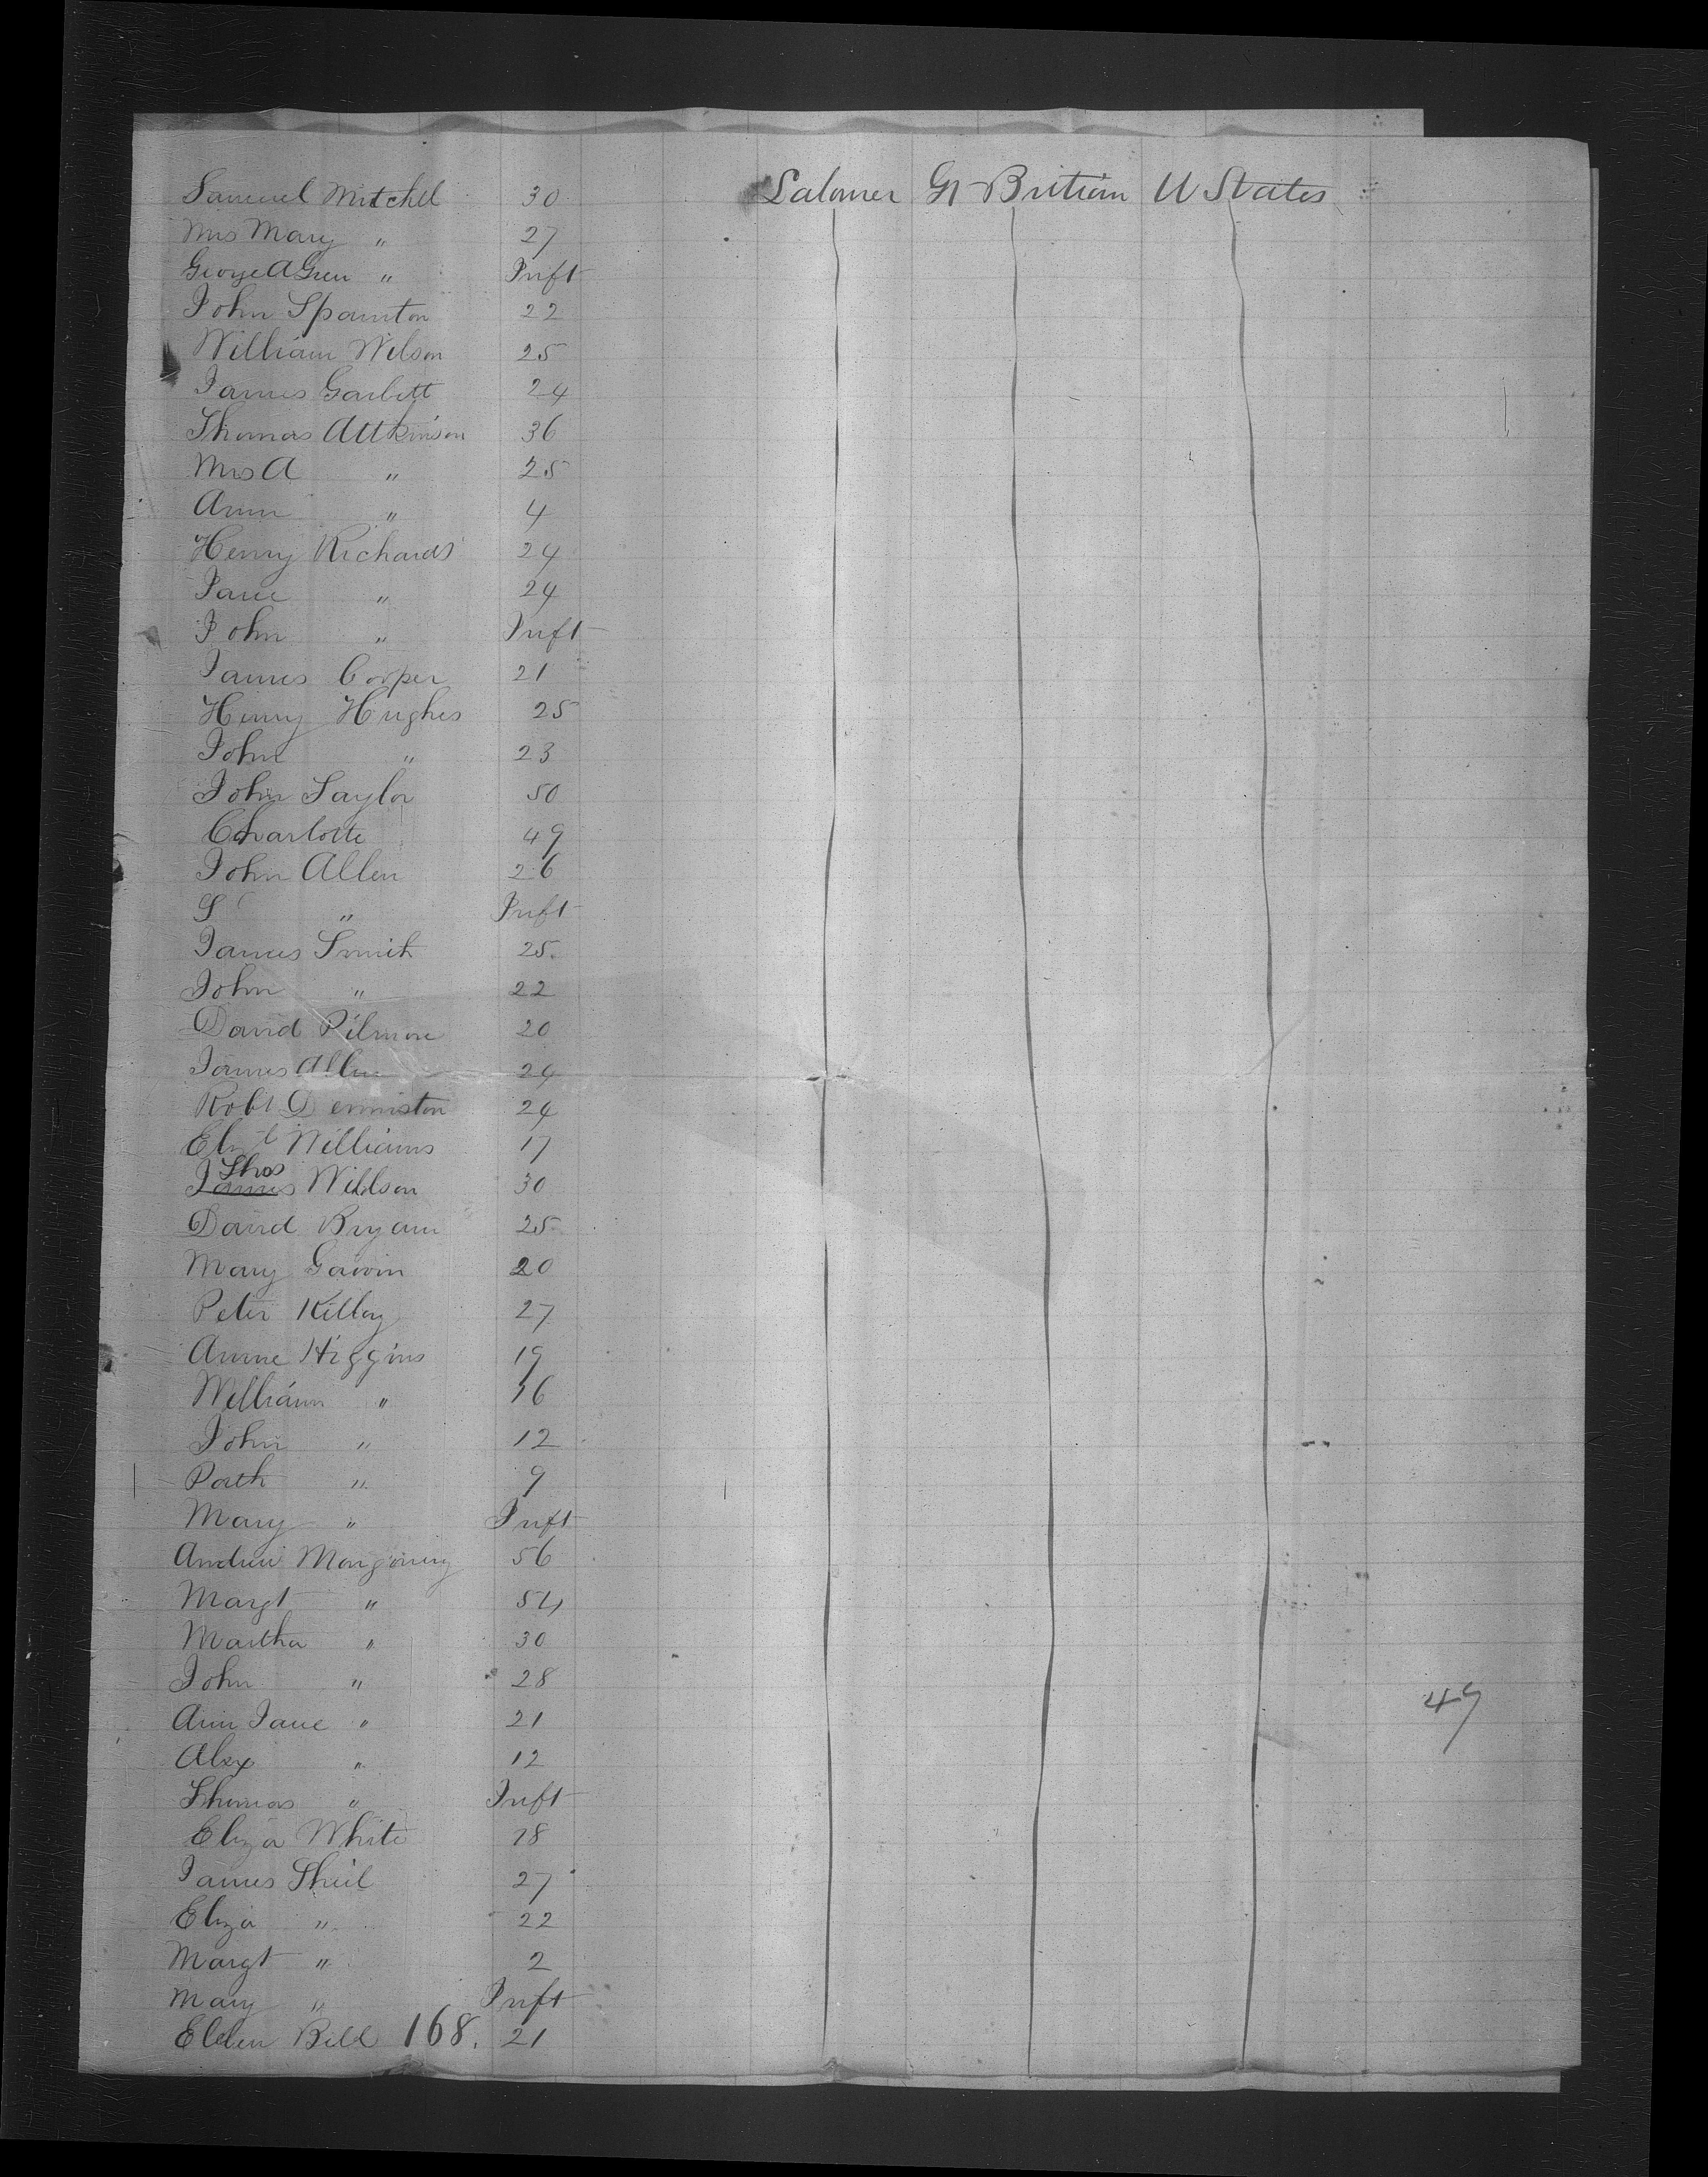 Samuel Mitchel 30 Labourer Gt Britian U States
Mrs Mary " 27
George A Green " Inft
John Spainton 22
William Wilson 25
James Garbett 24
Thomas Attkinson 36
Mrs A " 25
Ann " 4
Henry Richards 24
Jane " 24
John " Inft
James Cooper 21
Henry Hughes 25
John " 23
John Taylor 50
Charlotte 49
John Allen 26
S " Inft
James Smith 25
John " 22
David Pilmore 20
James Allen 24
Robt Denniston 24
Williams 17
Thos
James Willson 30
David Bryam 25
Mary Gavin 20
Peter Killoy 27
Anne Higgins 19
William " 16
John " 12
Path " 9
Mary " Inft
Andrew Mongomery 56
Margt " 54
Martha " 30
John " 28
Ann Jane " 21
47
Alex " 12
Thomas " Inft
Eliza White 18
James Shiel 27
Eliza " 22
Margt " 2
Mary " Inft
Ellen Bell 168. 21